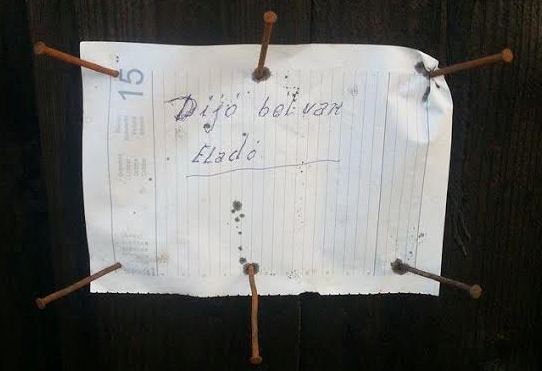 15
Dijó ból van
ELadó